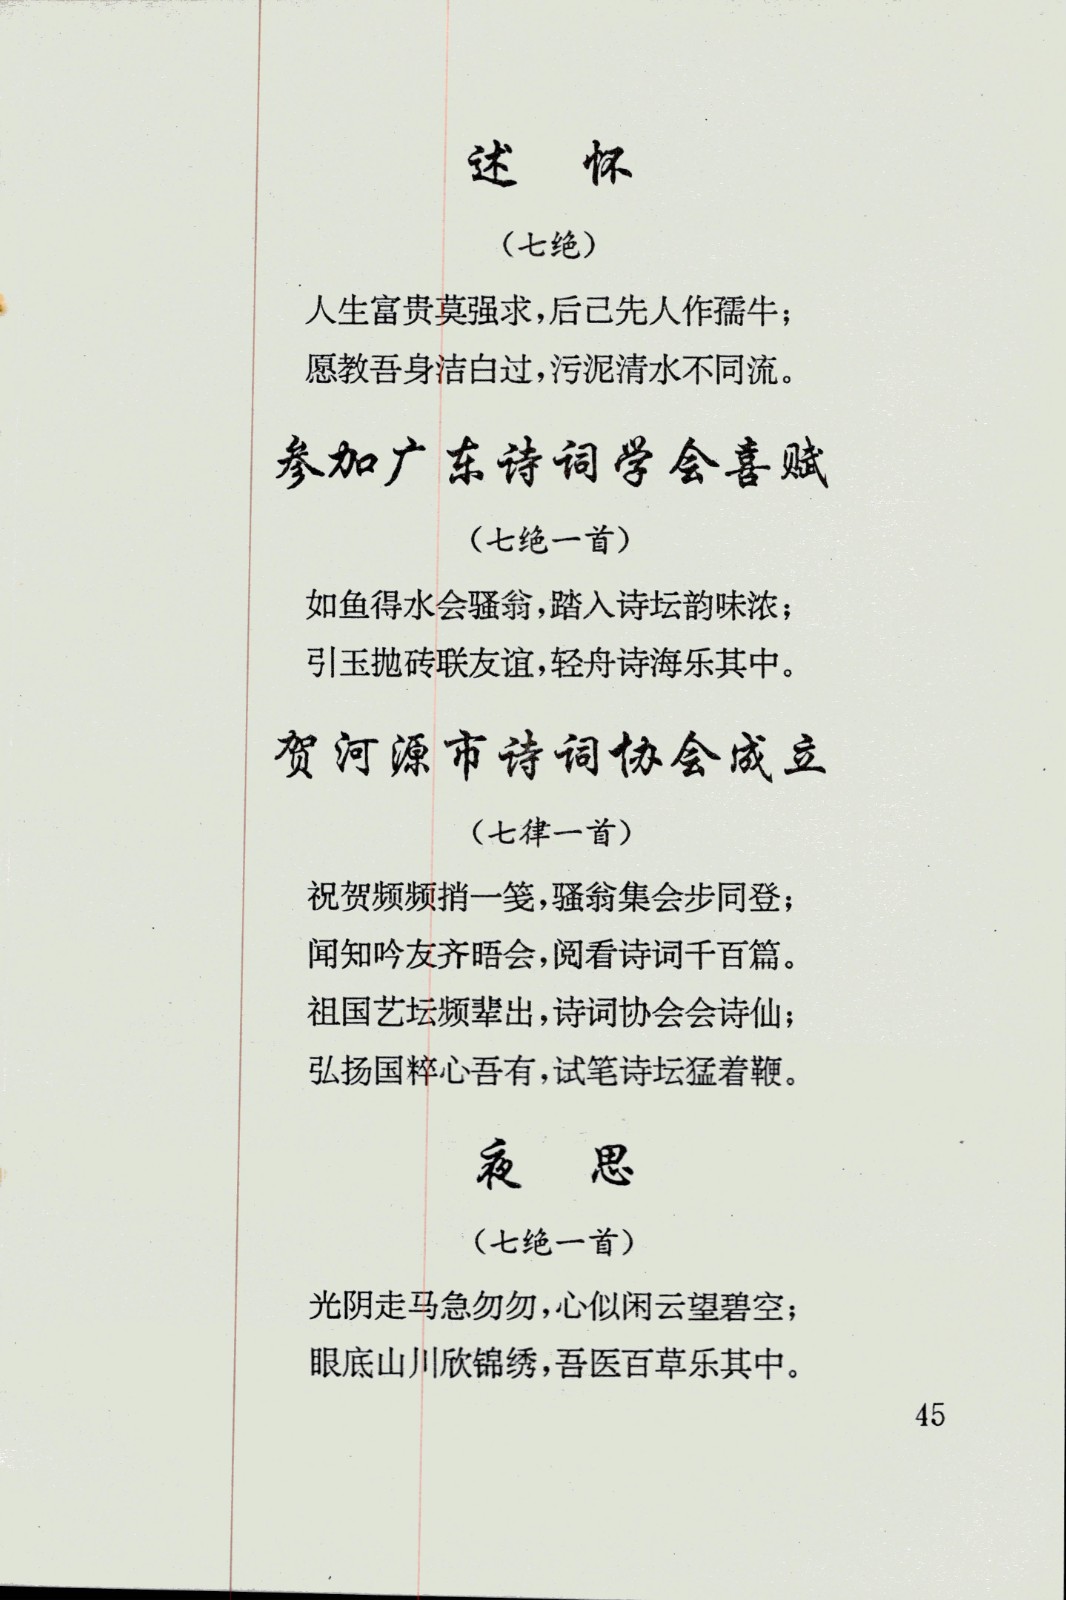 述　怀
（七绝）
人生富贵莫强求，后己先人作孺牛；
愿教吾身洁白过，污泥清水不同流。
参加广东诗词学会喜赋
（七绝一首）
如鱼得水会骚翁，踏入诗坛韵味浓；
引玉抛砖联友谊，轻舟诗海乐其中。
贺河源市诗词协会成立
（七律一首）
祝贺频频捎一笺，骚翁集会步同登；
闻知吟友齐晤会，阅看诗词千百篇。
祖国艺坛频辈出，诗词协会会诗仙；
弘扬国粹心吾有，试笔诗坛猛着鞭。
夜　思
（七绝一首）
光阴走马急勿勿，心似闲云望碧空；
眼底山川欣锦绣，吾医百草乐其中。
45